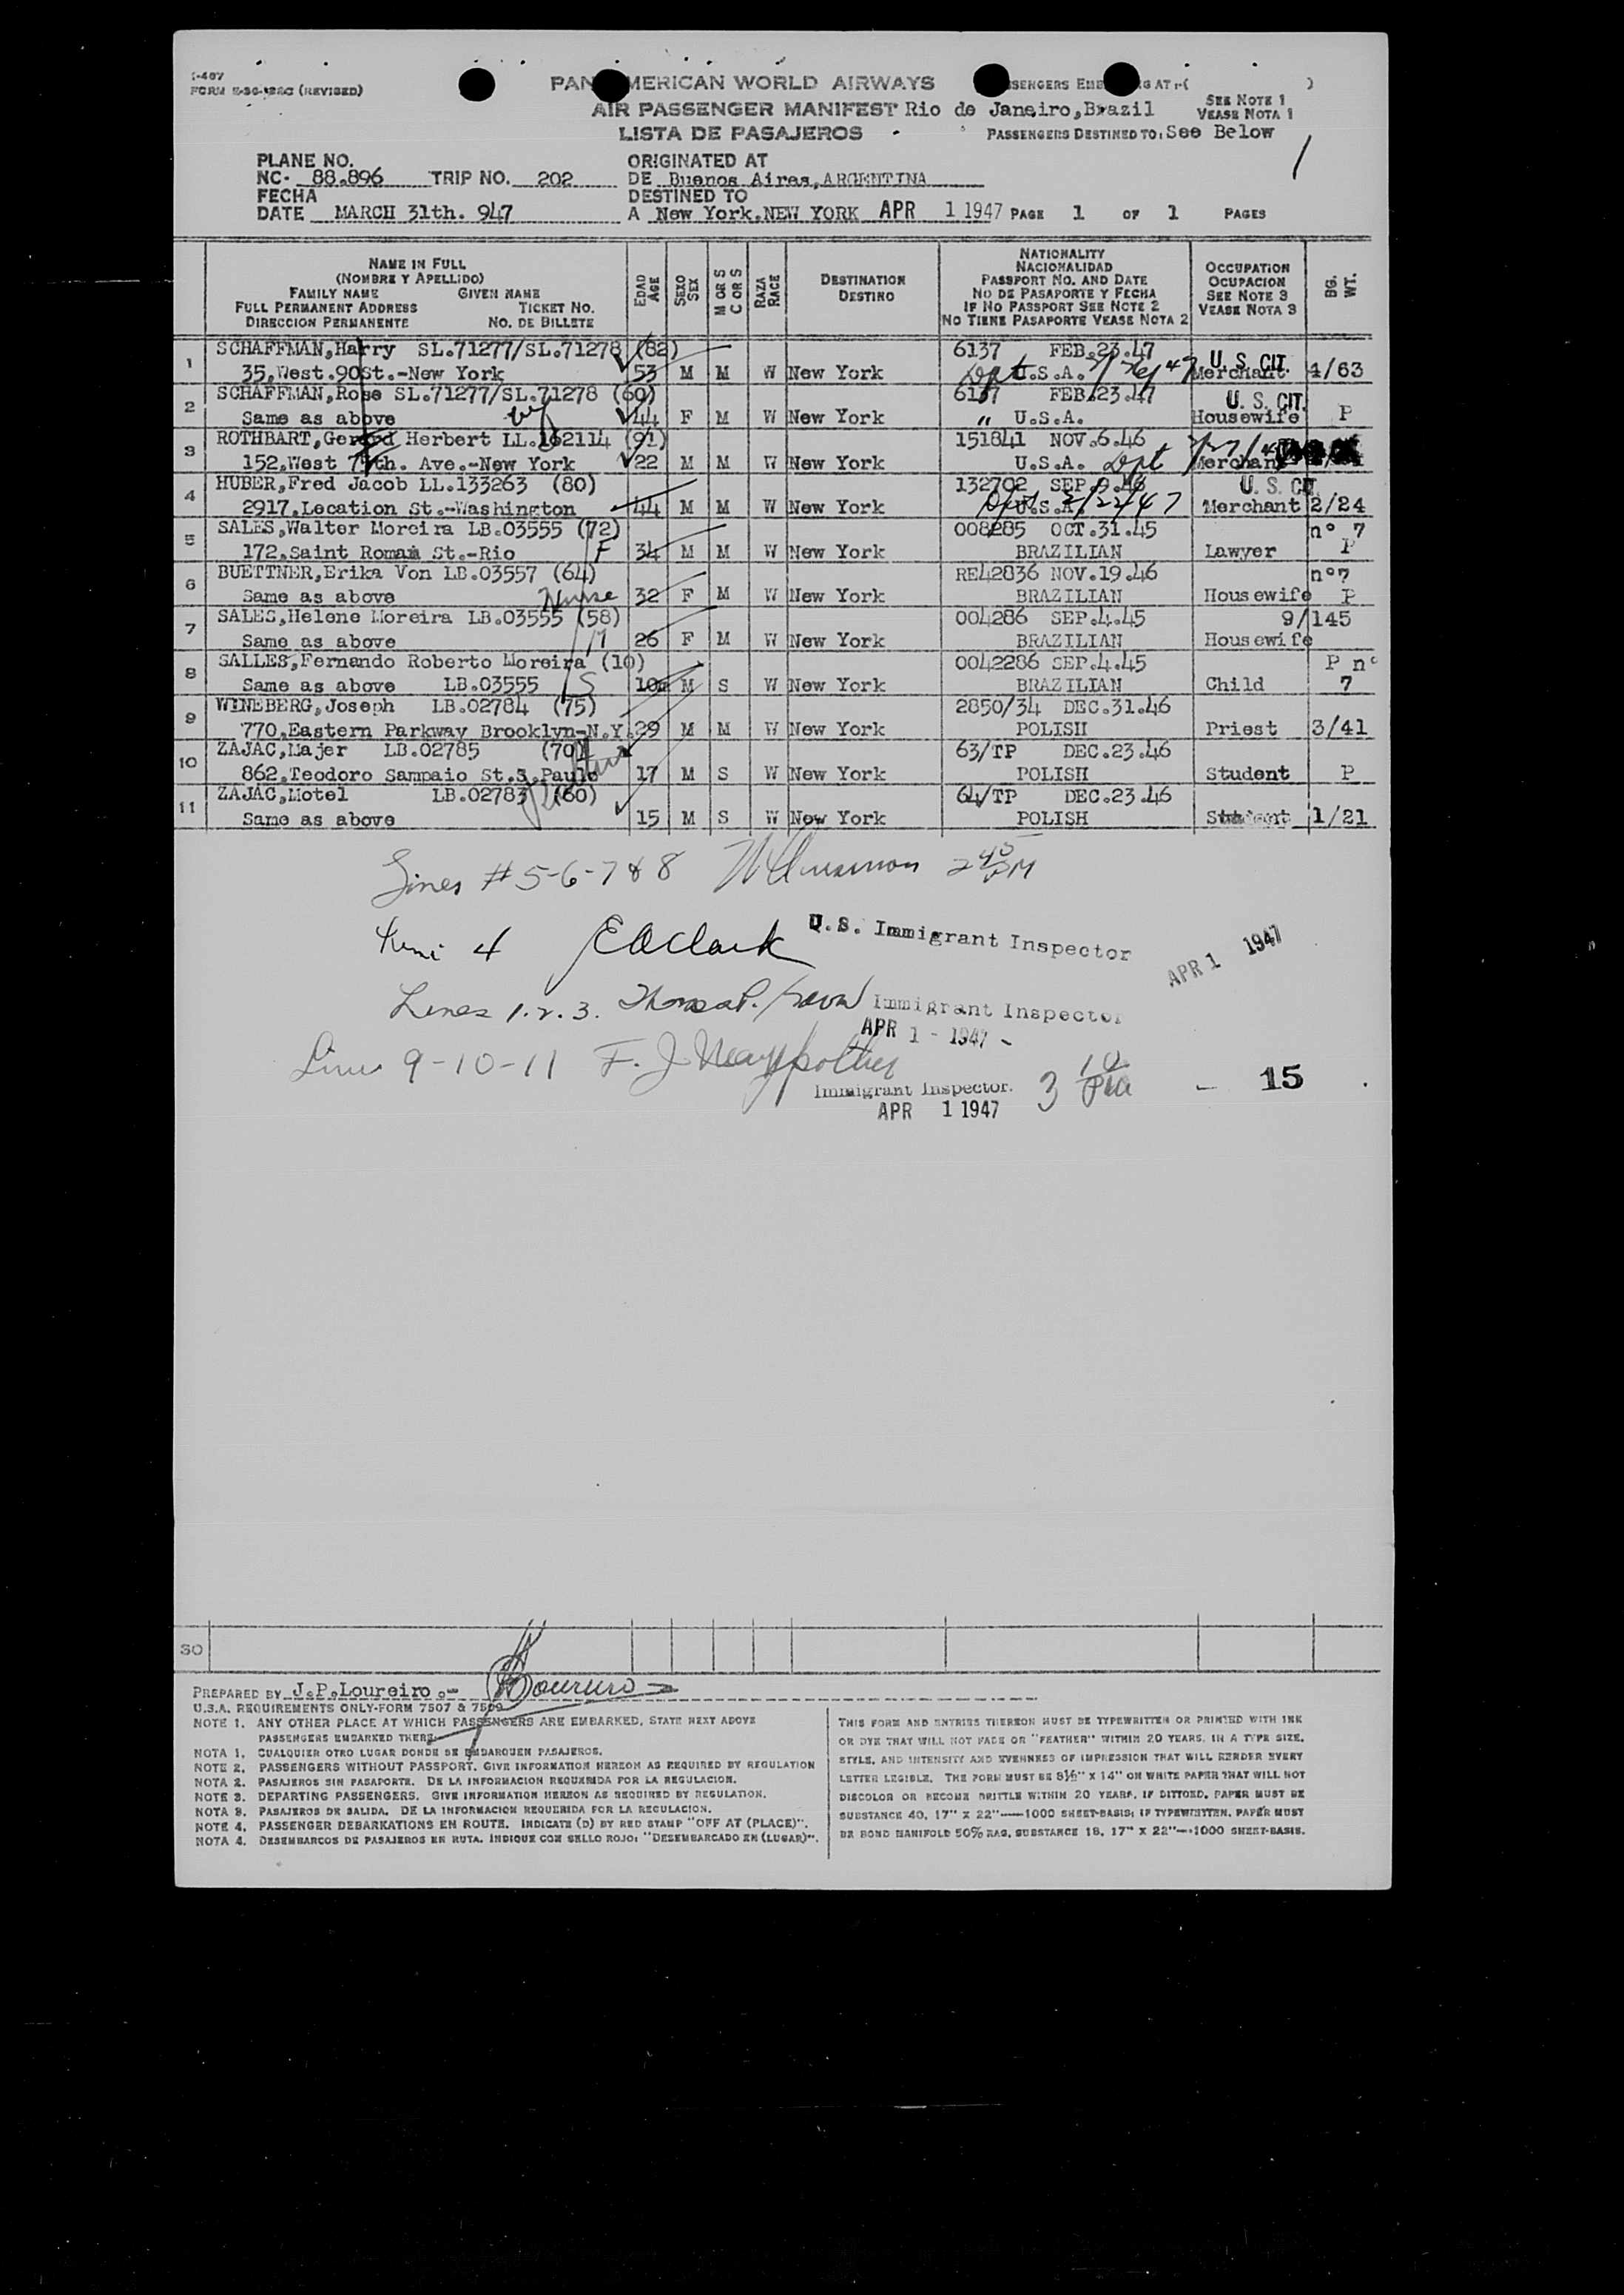 I-487
FORM (REVISED)
PAN AMERICAN WORLD AIRWAYS
AIR PASSENGER MANIFEST Rio de Janeiro,Brazil
LISTA DE PASAJEROS
SEE NOTE 1
VEASE NOTA 1
PASSENGERS DESTINED TO: See Below
PLANE NO.
NC- 88.896 TRIP NO. 202
FECHA
DATE MARCH 31th. 947
ORIGINATED AT
DE Buenos Aires,ARGENTINA
DESTINED TO
A New York,NEW YORK APR 1 1947 PAGE 1 OF 1 PAGES
NAME IN FULL
(NOMBRE Y APELLIDO)
FAMILY NAME GIVEN NAME
FULL PERMANENT ADDRESS TICKET NO.
DIRECCION PERMANENTE NO. DE BILLETE
EDAD AGE
SEXO SEX
M OR S C OR S
RAZA RACE
DESTINATION
DESTINO
NATIONALITY
NACIONALIDAD
PASSPORT NO. AND DATE
NO DE PASAPORTE Y FECHA
IF NO PASSPORT SEE NOTE 2
NO TIENE PASAPORTE VEASE NOTA 2
OCCUPATION
OCUPACION
SEE NOTE 3
VEASE NOTA 3
BG. WT.
1 SCHAFFMAN,Harry SL.71277/SL.71278 (82) 6137 FEB.23.47 U. S. CIT.
35,West.90St.-New York 53 M M W New York Dpt U.S.A. Merchant 4/63
2 SCHAFFMAN,Rose SL.71277/SL.71278 (60) 6137 FEB.23.47 U. S. CIT.
Same as above 44 F M W New York " U.S.A. Housewife P
3 ROTHBART,Gerard Herbert LL.162114 (91) 151841 NOV.6.46
152,West 75th. Ave.-New York 22 M M W New York U.S.A. Dpt Merchant
4 HUBER,Fred Jacob LL.133263 (80) 132702 SEP.9.46 U. S. CIT.
2917,Location St.-Washington 44 M M W New York U.S.A. 2/22/47 Merchant 2/24
5 SALES,Walter Moreira LB.03555 (72) 008285 OCT.31.45 nº 7
172,Saint Roman St.-Rio F 34 M M W New York BRAZILIAN Lawyer P
6 BUETTNER,Erika Von LB.03557 (64) RE42836 NOV.19.46 nº7
Same as above Nurse 32 F M W New York BRAZILIAN Housewife P
7 SALES,Helene Moreira LB.03555 (58) 004286 SEP.4.45 9/145
Same as above M 26 F M W New York BRAZILIAN Housewife
8 SALLES,Fernando Roberto Moreira (10) 0042286 SEP.4.45 P nº
Same as above LB.03555 S 10m M S W New York BRAZILIAN Child 7
9 WINEBERG,Joseph LB.02784 (75) 2850/34 DEC.31.46
770,Eastern Parkway Brooklyn-N.Y. 29 M M W New York POLISH Priest 3/41
10 ZAJAC,Majer LB.02785 (70) 63/TP DEC.23.46
862,Teodoro Sampaio St.S.Paulo 17 M S W New York POLISH Student P
11 ZAJAC,Motel LB.02783 (60) 64/TP DEC.23.46
Same as above 15 M S W New York POLISH Student 1/21
Lines # 5-6-7 & 8 2 45 PM
Line 4 E A Clark U.S. Immigrant Inspector APR 1 1947
Lines 1. 2. 3. Thomas P. Immigrant Inspector
APR 1 - 1947
Line 9-10-11 F. J.
Immigrant Inspector. 3 10 PM - 15
APR 1 1947
30
PREPARED BY J.P.Loureiro.- Loureiro
U.S.A. REQUIREMENTS ONLY-FORM 7507 & 7509
NOTE 1. ANY OTHER PLACE AT WHICH PASSENGERS ARE EMBARKED, STATE NEXT ABOVE
PASSENGERS EMBARKED THERE.
NOTA 1. CUALQUIER OTRO LUGAR DONDE SE EMBARQUEN PASAJEROS.
NOTE 2. PASSENGERS WITHOUT PASSPORT. GIVE INFORMATION HEREON AS REQUIRED BY REGULATION
NOTA 2. PASAJEROS SIN PASAPORTE. DE LA INFORMACION REQUERIDA POR LA REGULACION.
NOTE 3. DEPARTING PASSENGERS. GIVE INFORMATION HEREON AS REQUIRED BY REGULATION.
NOTA 3. PASAJEROS DE SALIDA. DE LA INFORMACION REQUERIDA POR LA REGULACION.
NOTE 4. PASSENGER DEBARKATIONS EN ROUTE. INDICATE (D) BY RED STAMP "OFF AT (PLACE)".
NOTA 4. DESEMBARCOS DE PASAJEROS EN RUTA. INDIQUE CON SELLO ROJO: "DESEMBARCADO EN (LUGAR)".
THIS FORM AND ENTRIES THEREON MUST BE TYPEWRITTEN OR PRINTED WITH INK
OR DYE THAT WILL NOT FADE OR "FEATHER" WITHIN 20 YEARS, IN A TYPE SIZE,
STYLE, AND INTENSITY AND EVENNESS OF IMPRESSION THAT WILL RENDER EVERY
LETTER LEGIBLE. THE FORM MUST BE 8½" X 14" ON WHITE PAPER THAT WILL NOT
DISCOLOR OR BECOME BRITTLE WITHIN 20 YEARS, IF DITTOED, PAPER MUST BE
SUBSTANCE 40, 17" X 22"—1000 SHEET-BASIS; IF TYPEWRITTEN, PAPER MUST
BE BOND MANIFOLD 50% RAG, SUBSTANCE 18, 17" X 22"—1000 SHEET-BASIS.